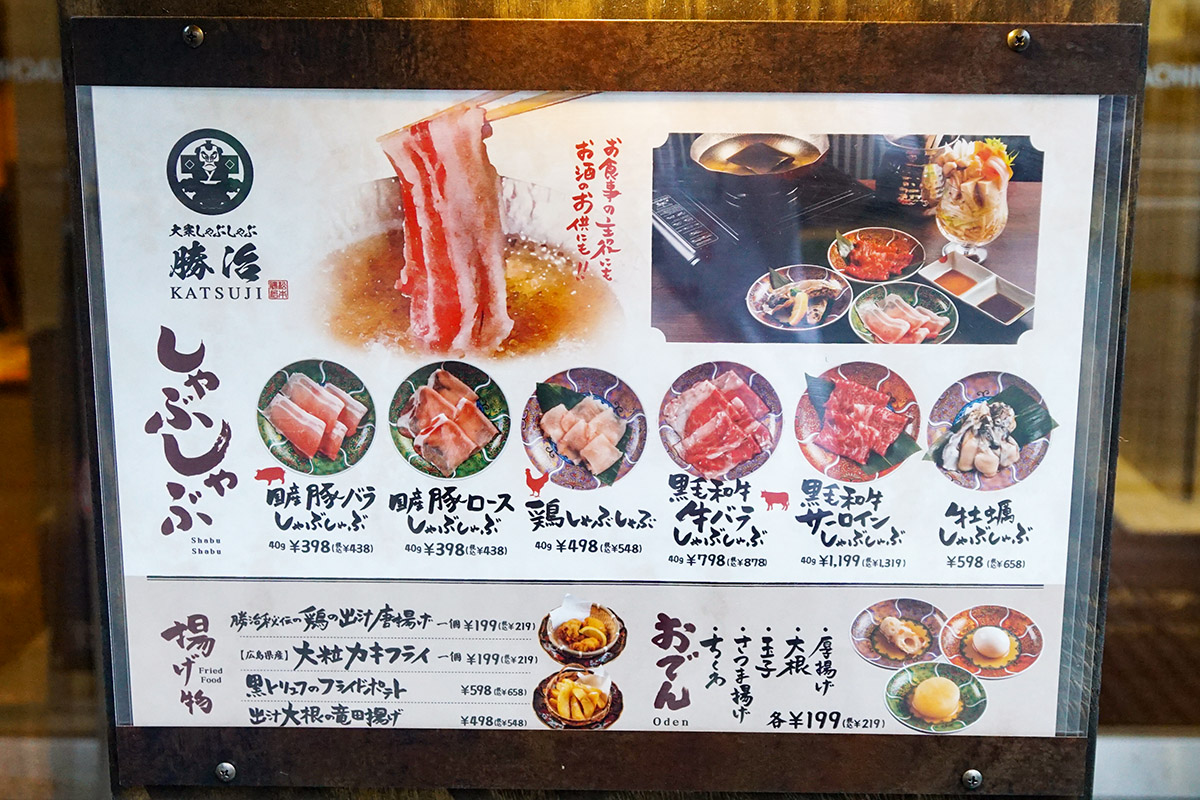 大衆しゃぶしゃぶ
勝治
KATSUJI
お食事の主役にも
お酒のお供にも!!
しゃぶしゃぶ
Shabu
Shabu
国産豚バラ
しゃぶしゃぶ
40g ¥398(税込¥438)
国産豚ロース
しゃぶしゃぶ
40g ¥398(税込¥438)
鶏しゃぶしゃぶ
40g ¥498(税込¥548)
黒毛和牛
牛バラ
しゃぶしゃぶ
40g ¥798(税込¥878)
黒毛和牛
サーロイン
しゃぶしゃぶ
40g ¥1,199(税込¥1,319)
牡蠣
しゃぶしゃぶ
¥598(税込¥658)
揚げ物
Fried
Food
勝治秘伝の鶏の出汁唐揚げ 一個 ¥199(税込¥219)
【広島県産】大粒カキフライ 一個 ¥199(税込¥219)
黒トリュフのフライドポテト ¥598(税込¥658)
出汁大根の竜田揚げ ¥498(税込¥548)
おでん
Oden
・厚揚げ
・大根
・玉子
・さつま揚げ
・ちくわ
各¥199(税込¥219)